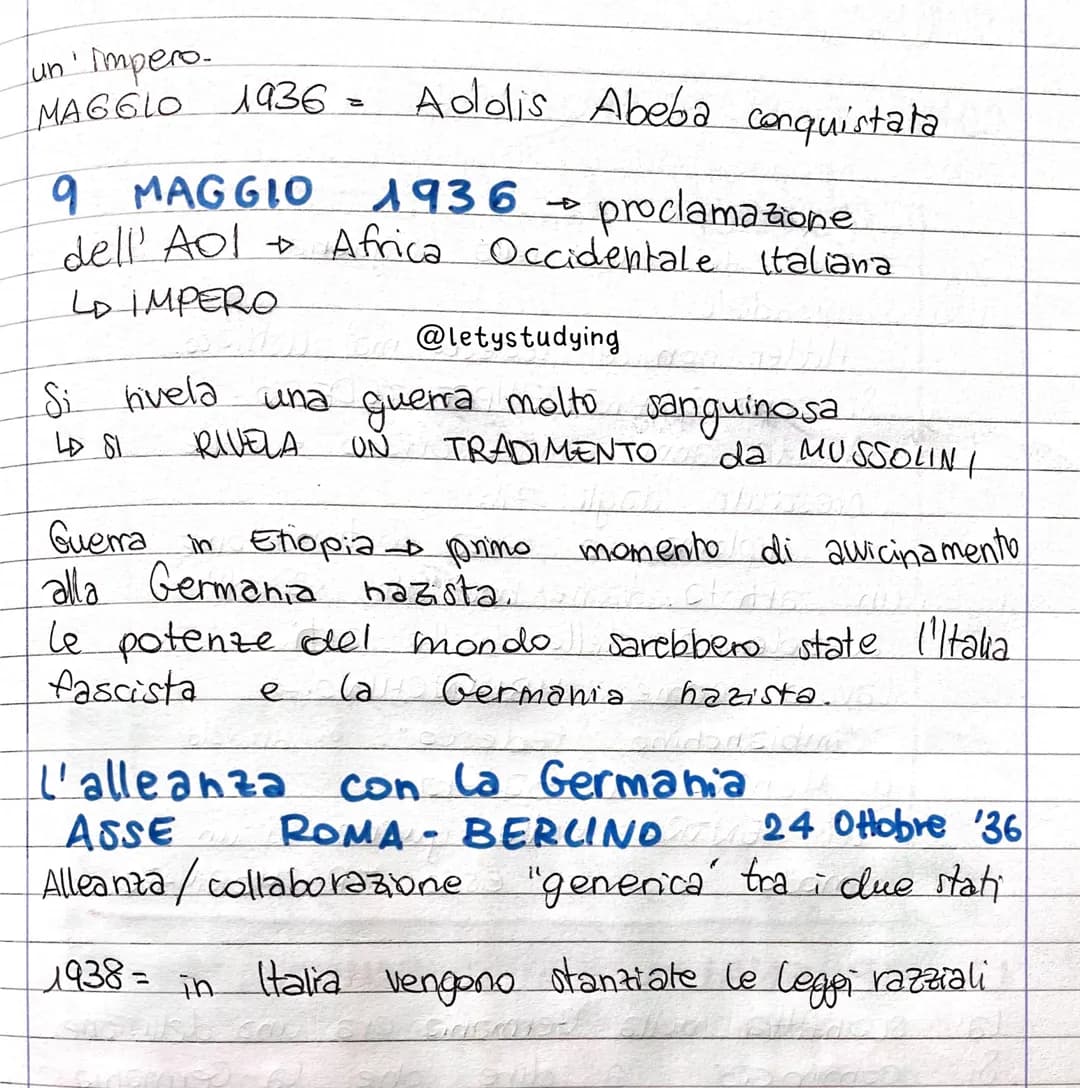 un' Impero.
MAGGIO 1936 = Addis Abeba conquistata
9 MAGGIO 1936 → proclamazione
dell' AOI → Africa Occidentale Italiana
↳ IMPERO
@letystudying
Si rivela una guerra molto sanguinosa
↳ SI RIVELA UN TRADIMENTO da MUSSOLINI
Guerra in Etiopia → primo momento di avvicinamento
alla Germania nazista.
Le potenze del mondo sarebbero state l'Italia
fascista e la Germania nazista.
L'alleanza con la Germania
ASSE ROMA - BERLINO 24 Ottobre '36
Alleanza / collaborazione "generica" tra i due stati
1938 = in Italia vengono stanziate le leggi razziali